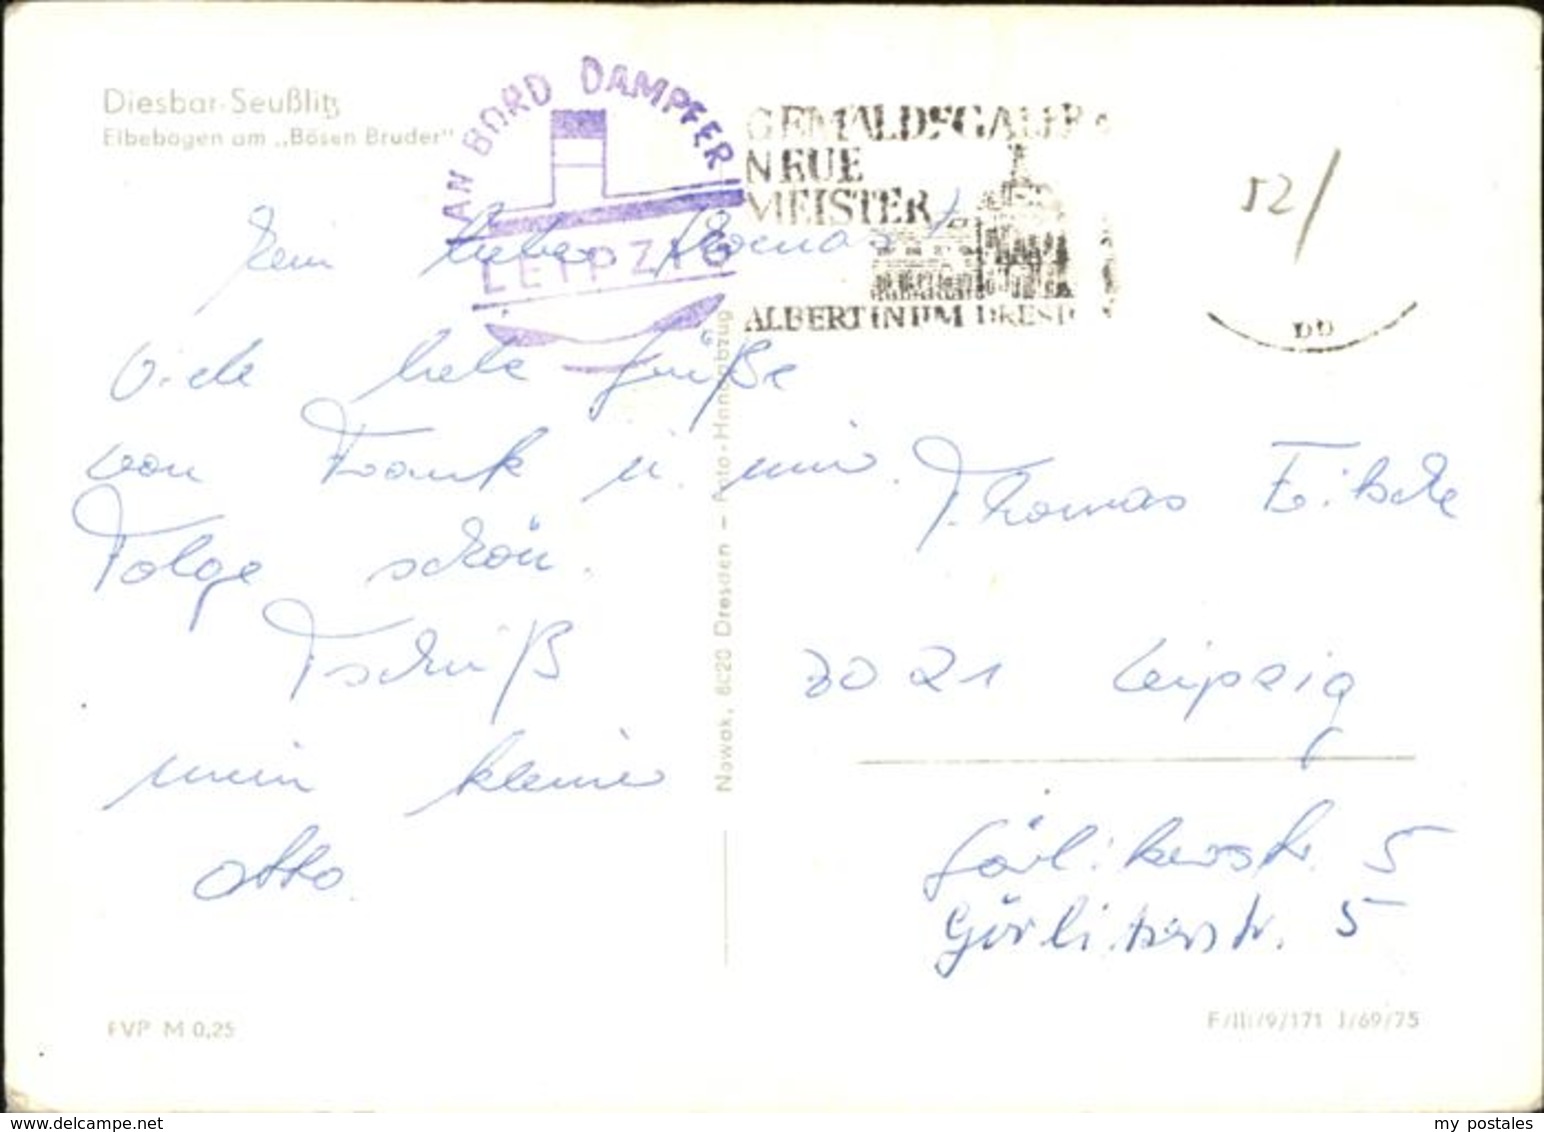 Diesbar-Seußlitz
Elbebogen am „Bösen Bruder"
AN BORD DAMPFER
LEIPZIG
GEMÄLDEGALER
NEUE
MEISTER
ALBERTINUM DRESD
52/
DD
Mein lieber Thomas!
Viele liebe Grüße
von Frank u. mir.
Folge schön.
Tschüß
mein kleiner
Otto.
Nowak, 8020 Dresden – Foto-Handabzug
Thomas
7021 Leipzig
Görlitzerstr. 5
Görlitzerstr. 5
EVP M 0,25
F/III/9/171 J/69/75
www.delcampe.net
my postales